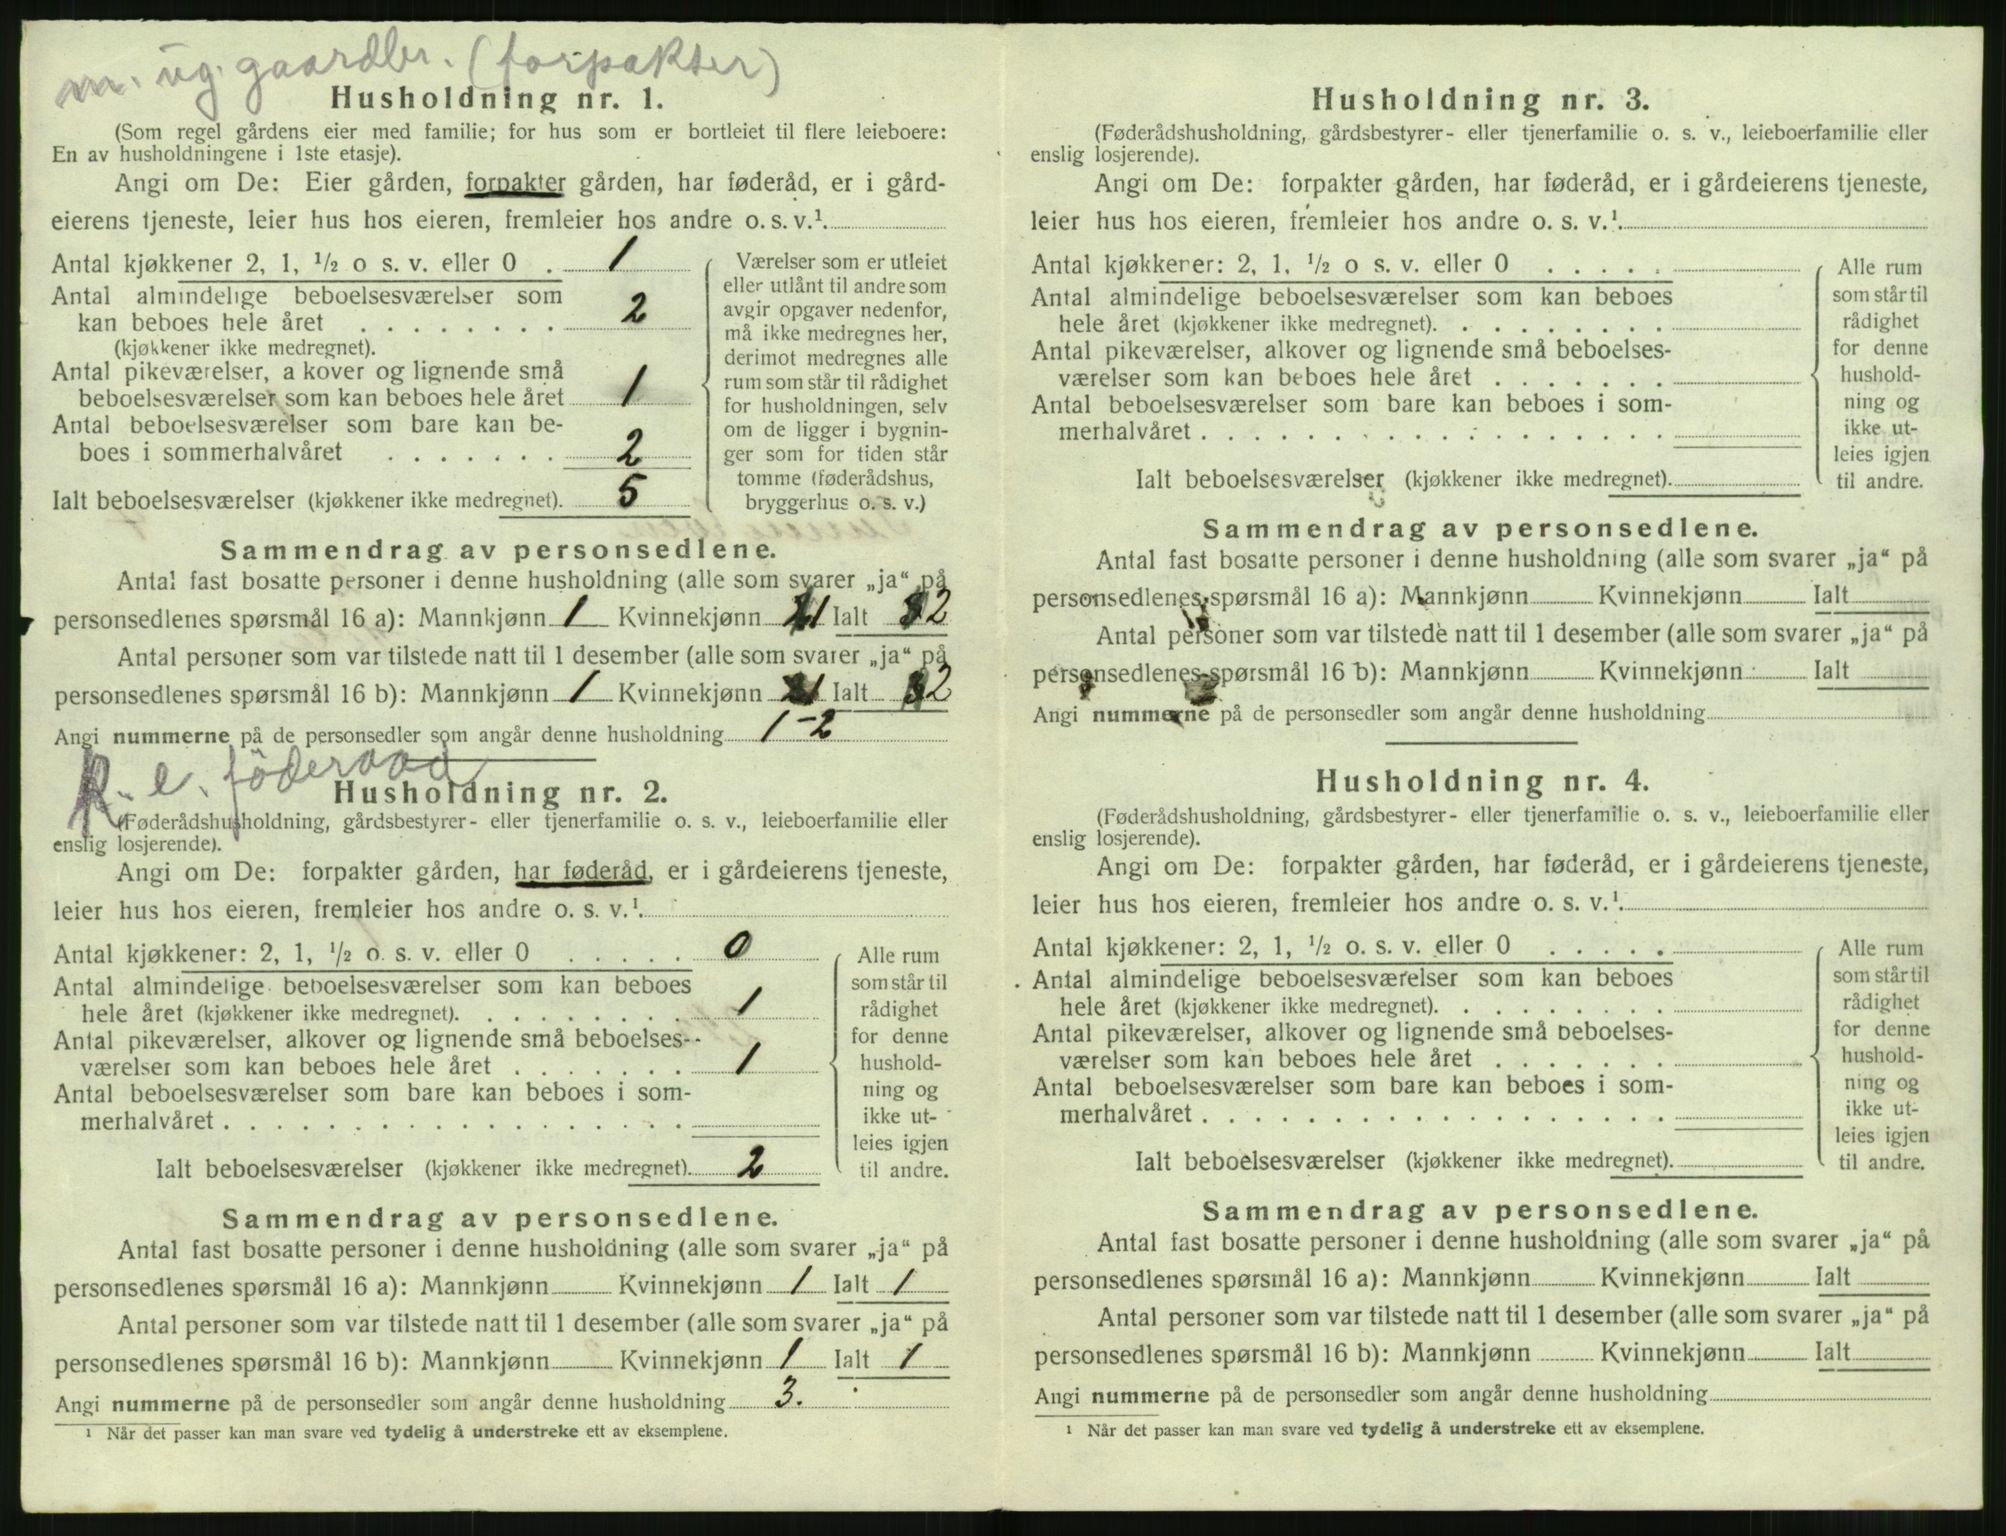 m. ug. gaardbr. (forpakter)
Husholdning nr. 1.
(Som regel gårdens eier med familie; for hus som er bortleiet til flere leieboere:
En av husholdningene i 1ste etasje).
Angi om De: Eier gården, forpakter gården, har føderåd, er i gård-
eierens tjeneste, leier hus hos eieren, fremleier hos andre o. s. v.¹.
Antal kjøkkener 2, 1, ½ o s. v. eller 0 . 1
Antal almindelige beboelsesværelser som
kan beboes hele året . . . . . . . . 2
(kjøkkener ikke medregnet).
Antal pikeværelser, a kover og lignende små
beboelsesværelser som kan beboes hele året 1
Antal beboelsesværelser som bare kan be-
boes i sommerhalvåret . . . . . . . 2
Ialt beboelsesværelser (kjøkkener ikke medregnet). 5
Værelser som er utleiet
eller utlånt til andre som
avgir opgaver nedenfor,
må ikke medregnes her,
derimot medregnes alle
rum som står til rådighet
for husholdningen, selv
om de ligger i bygnin-
ger som for tiden står
tomme (føderådshus,
bryggerhus o. s. v.)
Sammendrag av personsedlene.
Antal fast bosatte personer i denne husholdning (alle som svarer „ja“ på
personsedlenes spørsmål 16 a): Mannkjønn 1 Kvinnekjønn 1 Ialt 2
Antal personer som var tilstede natt til 1 desember (alle som svarer „ja“ på
personsedlenes spørsmål 16 b): Mannkjønn 1 Kvinnekjønn 1 Ialt 2
Angi nummerne på de personsedler som angår denne husholdning 1-2
e. föderaad
Husholdning nr. 2.
(Føderådshusholdning, gårdsbestyrer- eller tjenerfamilie o. s. v., leieboerfamilie eller
enslig losjerende).
Angi om De: forpakter gården, har føderåd, er i gårdeierens tjeneste,
leier hus hos eieren, fremleier hos andre o. s. v.¹.
Antal kjøkkener: 2, 1, ½ o. s. v. eller 0 . . . . . 0
Antal almindelige beboelsesværelser som kan beboes
hele året (kjøkkener ikke medregnet). . . . . . . . . 1
Antal pikeværelser, alkover og lignende små beboelses-
værelser som kan beboes hele året . . . . . . . 1
Antal beboelsesværelser som bare kan beboes i som-
merhalvåret . . . . . . . . . . . . . . . . . .
Ialt beboelsesværelser (kjøkkener ikke medregnet). 2
Alle rum
som står til
rådighet
for denne
hushold-
ning og
ikke ut-
leies igjen
til andre.
Sammendrag av personsedlene.
Antal fast bosatte personer i denne husholdning (alle som svarer „ja“ på
personsedlenes spørsmål 16 a): Mannkjønn Kvinnekjønn 1 Ialt 1
Antal personer som var tilstede natt til 1 desember (alle som svarer „ja“ på
personsedlenes spørsmål 16 b): Mannkjønn Kvinnekjønn 1 Ialt 1
Angi nummerne på de personsedler som angår denne husholdning 3.
¹ Når det passer kan man svare ved tydelig å understreke ett av eksemplene.
Husholdning nr. 3.
(Føderådshusholdning, gårdsbestyrer- eller tjenerfamilie o. s. v., leieboerfamilie eller
enslig losjerende).
Angi om De: forpakter gården, har føderåd, er i gårdeierens tjeneste,
leier hus hos eieren, fremleier hos andre o. s. v.¹.
Antal kjøkkener: 2, 1, ½ o s. v. eller 0 . . . . .
Antal almindelige beboelsesværelser som kan beboes
hele året (kjøkkener ikke medregnet). . . . . . . . .
Antal pikeværelser, alkover og lignende små beboelses-
værelser som kan beboes hele året . . . . . . .
Antal beboelsesværelser som bare kan beboes i som-
merhalvåret . . . . . . . . . . . . . . . . . .
Ialt beboelsesværelser (kjøkkener ikke medregnet).
Alle rum
som står til
rådighet
for denne
hushold-
ning og
ikke ut-
leies igjen
til andre.
Sammendrag av personsedlene.
Antal fast bosatte personer i denne husholdning (alle som svarer „ja“ på
personsedlenes spørsmål 16 a): Mannkjønn Kvinnekjønn Ialt
Antal personer som var tilstede natt til 1 desember (alle som svarer „ja“ på
personsedlenes spørsmål 16 b): Mannkjønn Kvinnekjønn Ialt
Angi nummerne på de personsedler som angår denne husholdning
Husholdning nr. 4.
(Føderådshusholdning, gårdsbestyrer- eller tjenerfamilie o. s. v., leieboerfamilie eller
enslig losjerende).
Angi om De: forpakter gården, har føderåd, er i gårdeierens tjeneste,
leier hus hos eieren, fremleier hos andre o. s. v.¹.
Antal kjøkkener: 2, 1, ½ o. s. v. eller 0 . . . . .
Antal almindelige beboelsesværelser som kan beboes
hele året (kjøkkener ikke medregnet). . . . . . . . .
Antal pikeværelser, alkover og lignende små beboelses-
værelser som kan beboes hele året . . . . . . .
Antal beboelsesværelser som bare kan beboes i som-
merhalvåret . . . . . . . . . . . . . . . . . .
Ialt beboelsesværelser (kjøkkener ikke medregnet).
Alle rum
som står til
rådighet
for denne
hushold-
ning og
ikke ut-
leies igjen
til andre.
Sammendrag av personsedlene.
Antal fast bosatte personer i denne husholdning (alle som svarer „ja“ på
personsedlenes spørsmål 16 a): Mannkjønn Kvinnekjønn Ialt
Antal personer som var tilstede natt til 1 desember (alle som svarer „ja“ på
personsedlenes spørsmål 16 b): Mannkjønn Kvinnekjønn Ialt
Angi nummerne på de personsedler som angår denne husholdning
¹ Når det passer kan man svare ved tydelig å understreke ett av eksemplene.